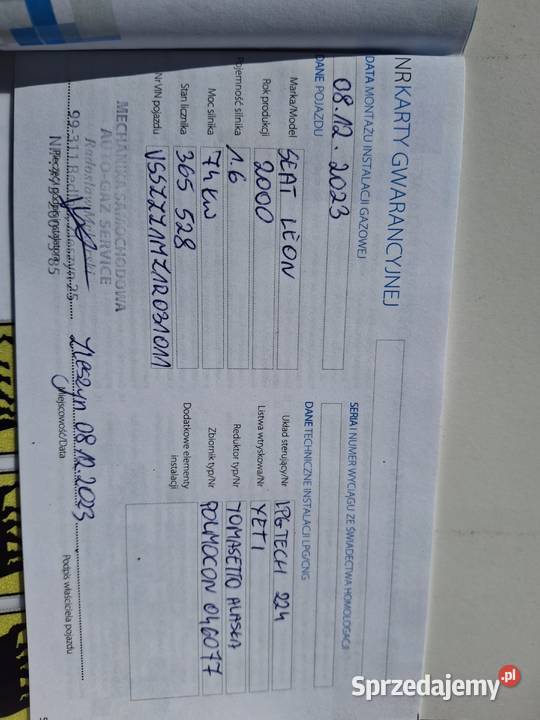 NR KARTY GWARANCYJNEJ
DATA MONTAŻU INSTALACJI GAZOWEJ
08.12.2023
DANE POJAZDU
Marka/Model SEAT LEON
Rok produkcji 2000
Pojemność silnika 1.6
Moc silnika 74 KW
Stan licznika 365 528
Nr VIN pojazdu VSSZZZ1MZ1R031011
SERIA I NUMER WYCIĄGU ZE ŚWIADECTWA HOMOLOGACJI
DANE TECHNICZNE INSTALACJI LPG/CNG
Układ sterujący/Nr LPG-TECH 224
Listwa wtryskowa/Nr YETI
Reduktor typ/Nr TOMASETTO ALASKA
Zbiornik typ/Nr POLMOCON 046077
Dodatkowe elementy
instalacji
MECHANIKA SAMOCHODOWA
AUTO-GAZ SERVICE
Radosław
99-311
Pieczęć i podpis instalatora
Zleszyn 08.12.2023
Miejscowość/Data
Podpis właściciela pojazdu
Sprzedajemy.pl